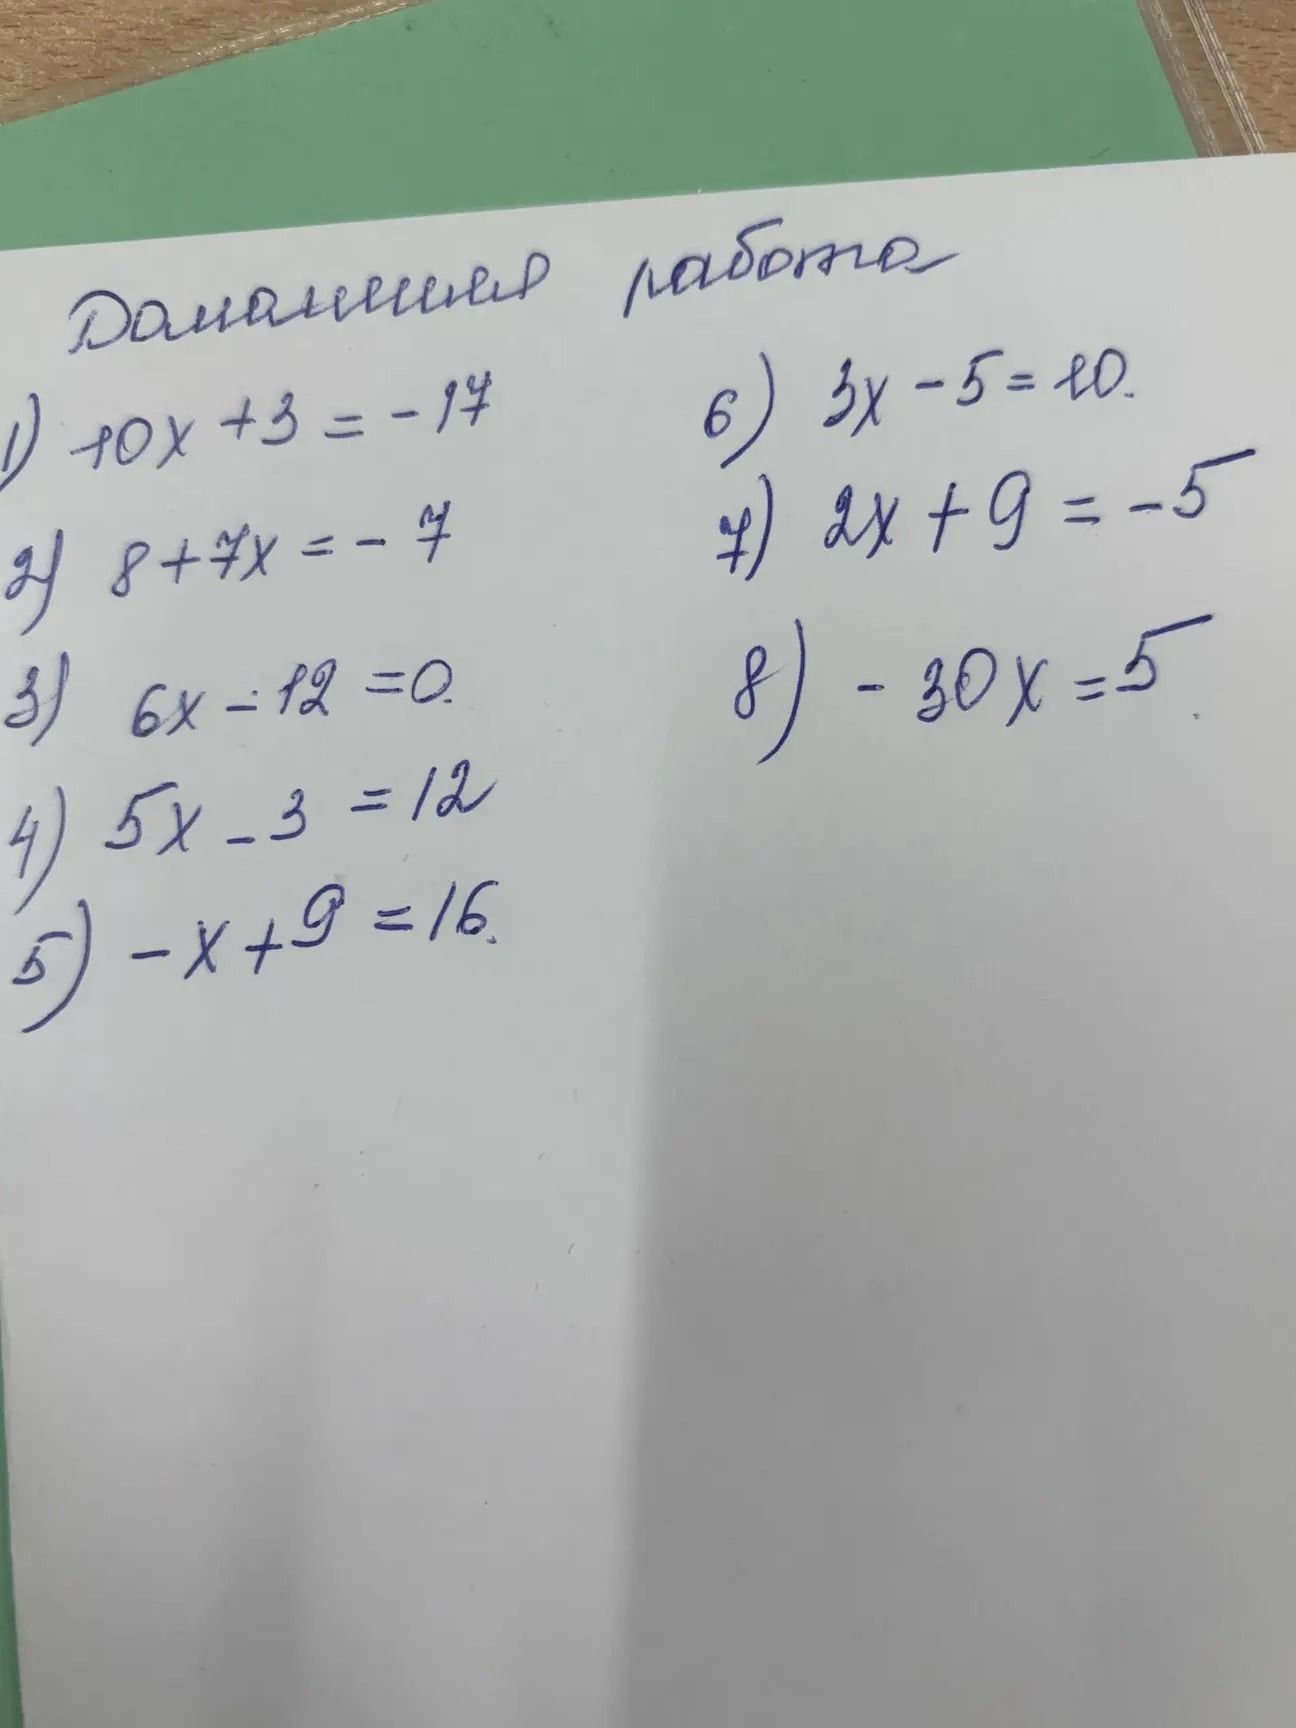 Домашняя работа
1) 10x + 3 = - 17
2) 8 + 7x = - 7
3) 6x - 12 = 0.
4) 5x - 3 = 12
5) - x + 9 = 16.
6) 3x - 5 = 10.
7) 2x + 9 = - 5
8) - 30x = 5.